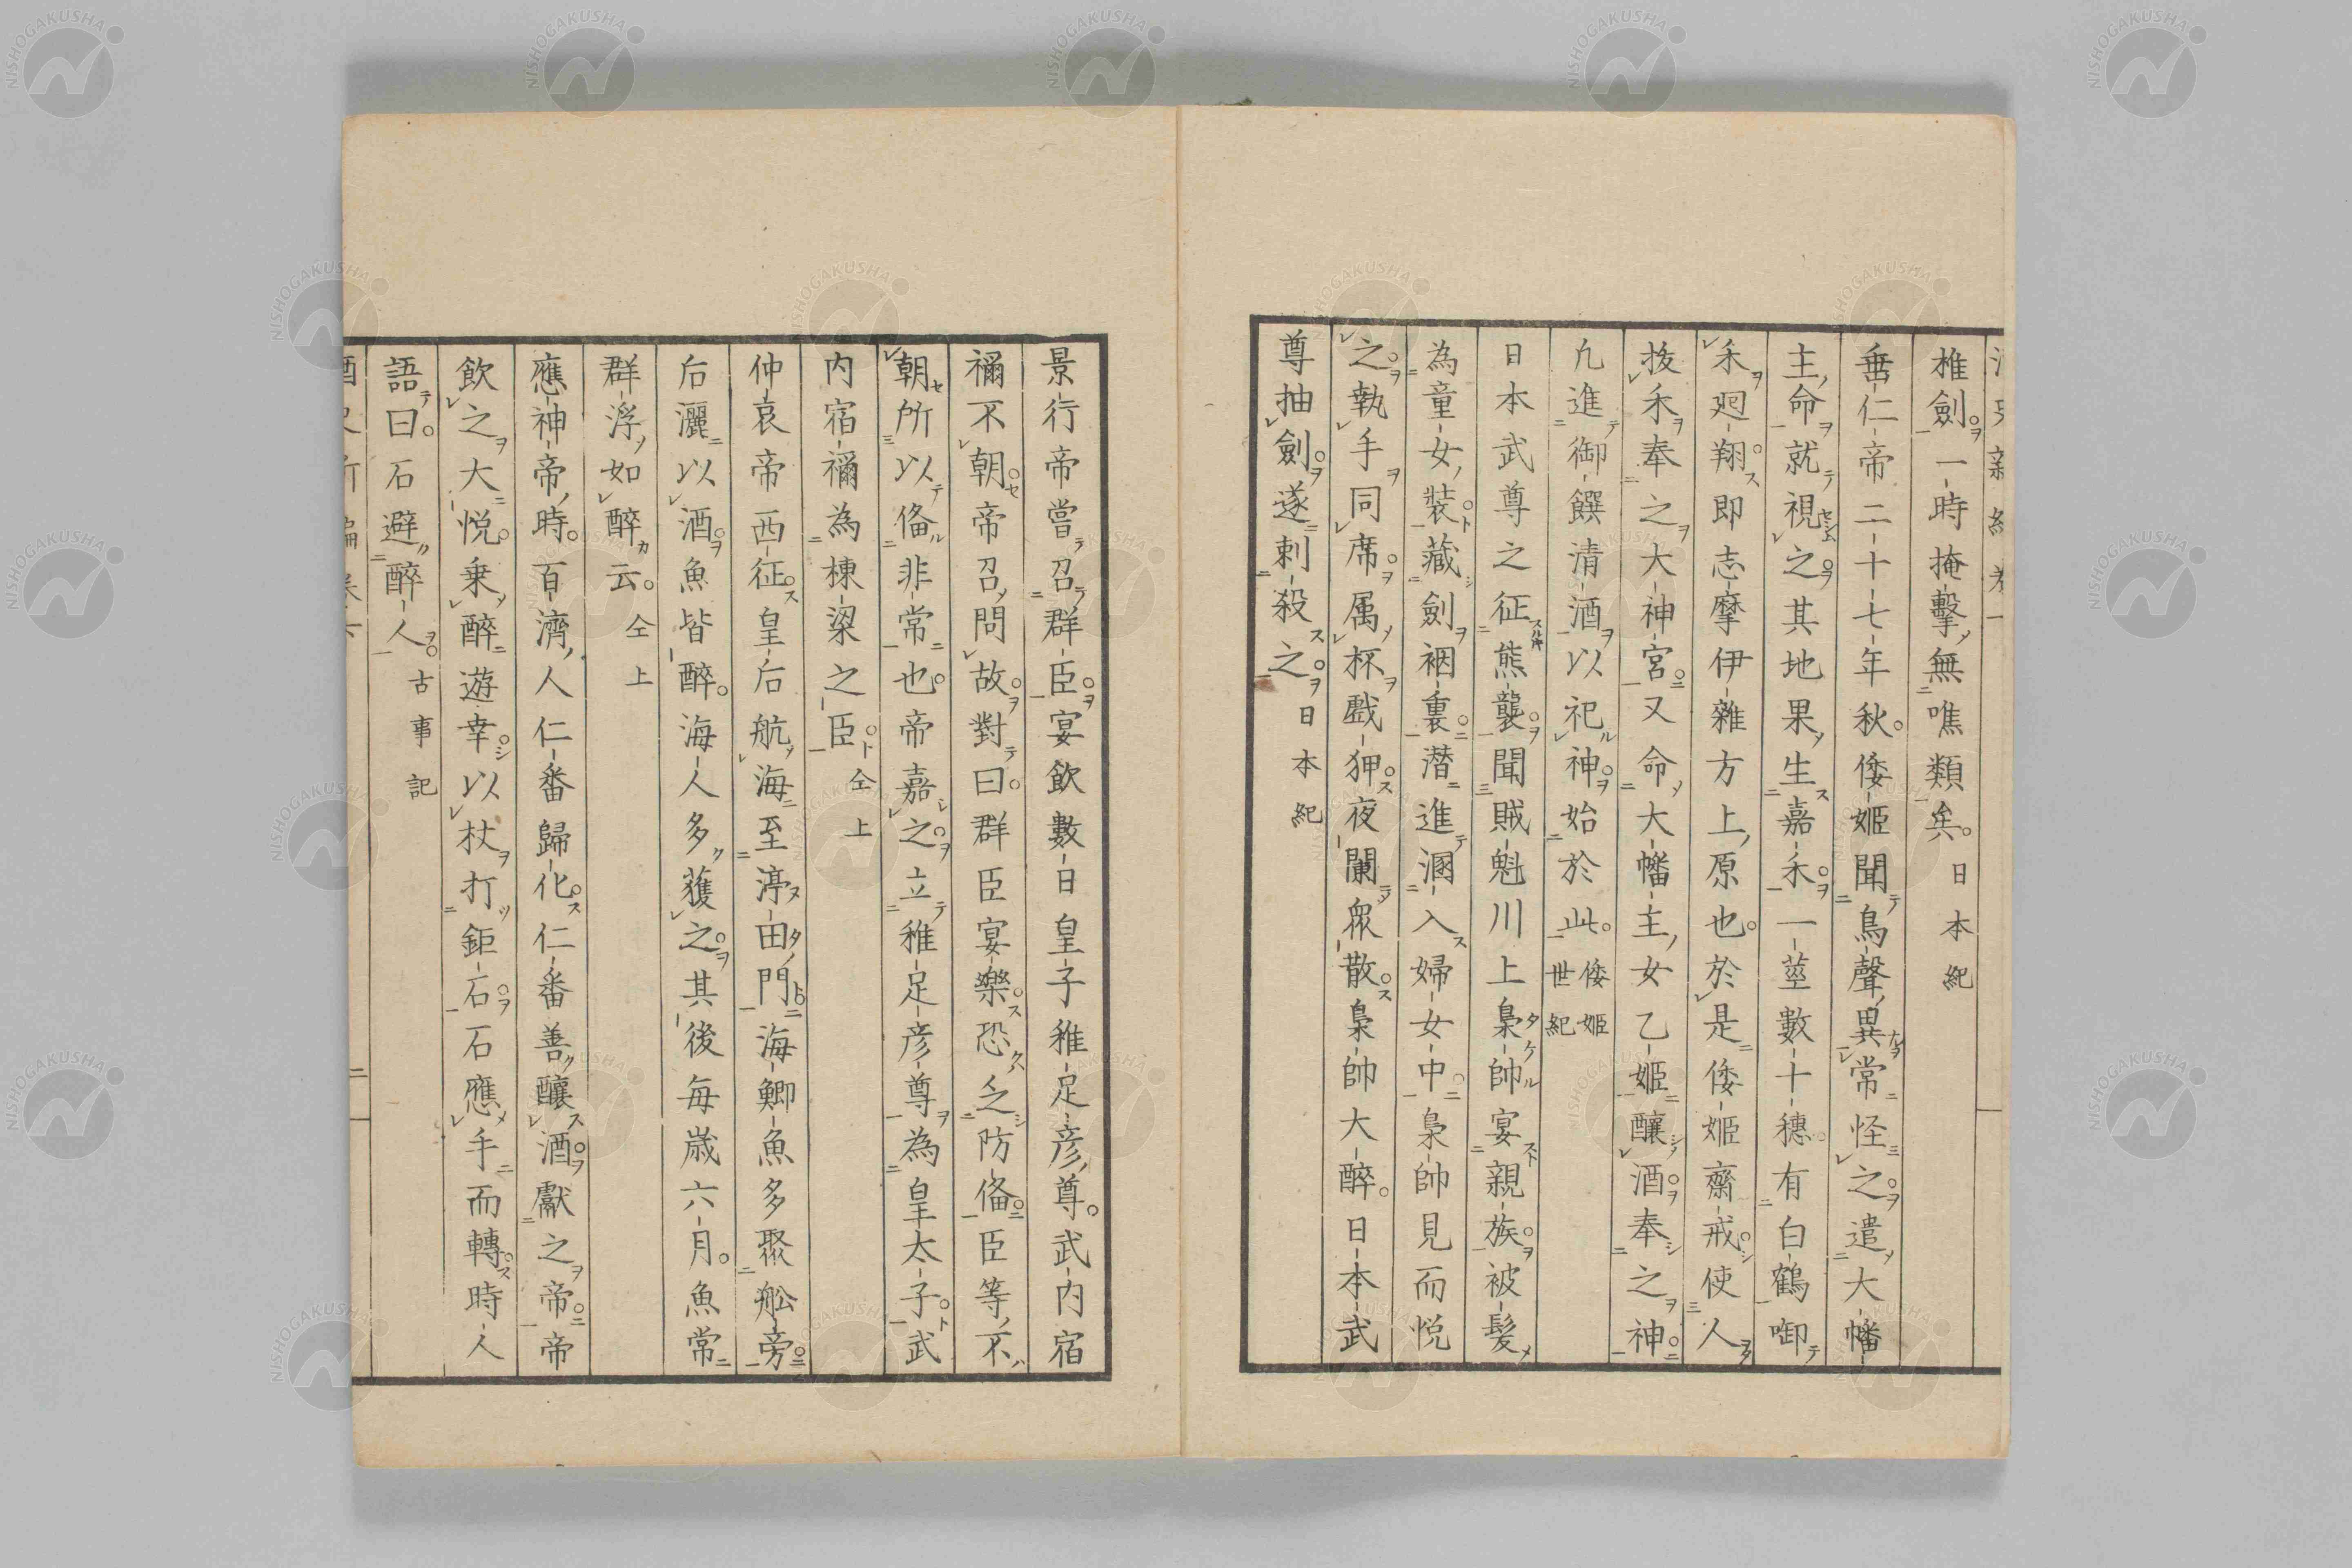 椎劍一時掩擊無噍類矣 日本紀
垂仁帝二十七年秋倭姬聞鳥聲異常怪之遣大幡
主命就視之其地果生嘉禾一莖數十穗有白鶴啣
禾廻翔即志摩伊雜方上原也於是倭姬齋戒使人
拔禾奉之大神宮又命大幡主女乙姬釀酒奉之神
凢進御饌清酒以祀神始於此 倭姬世紀
日本武尊之征熊襲聞賊魁川上梟帥宴親族被髮
為童女裝藏劍裀裏潛進溷入婦女中梟帥見而悅
之執手同席属杯戲狎夜闌眾散梟帥大醉日本武
尊抽劍遂刺殺之 日本紀
景行帝嘗召群臣宴飲數日皇子稚足彦尊武内宿
禰不朝帝召問故對曰群臣宴樂恐乏防俻臣等不
朝所以俻非常也帝嘉之立稚足彦尊為皇太子武
内宿禰為棟梁之臣 仝上
仲哀帝西征皇后航海至渟田門海鯽魚多聚舩旁
后灑以酒魚皆醉海人多獲之其後每歲六月魚常
群浮如醉云 仝上
應神帝時百濟人仁番歸化仁番善釀酒獻之帝帝
飲之大悅乗醉遊幸以杖打鉅石石應手而轉時人
語曰石避醉人 古事記